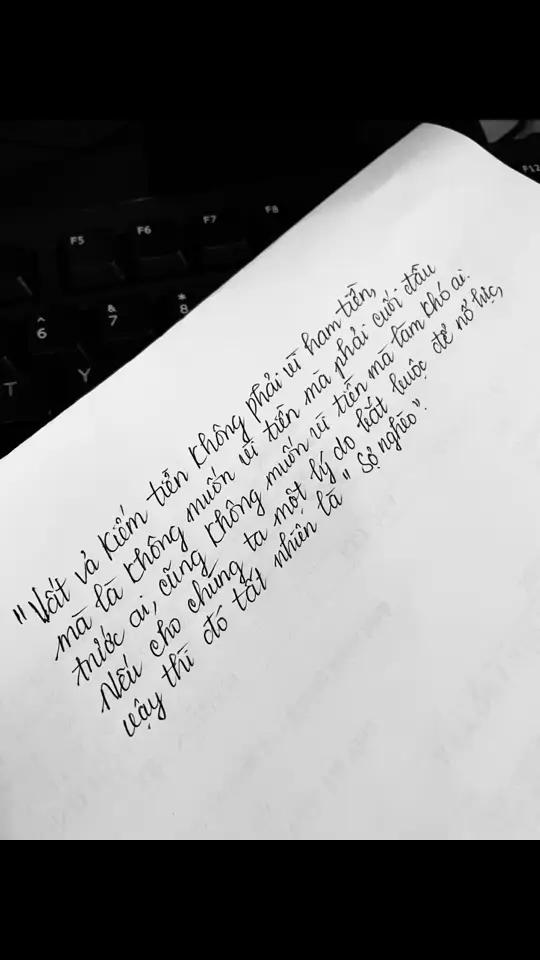 F5 F6 F7 F8 F12
^ 6 & 7 * 8
T Y
"Vất vả kiếm tiền không phải vì ham tiền,
mà là không muốn vì tiền mà phải cuối đầu
trước ai, cũng không muốn vì tiền mà làm khó ai.
Nếu cho chúng ta một lý do bắt buộc để nổ lực,
vậy thì đó tất nhiên là " Sợ nghèo".